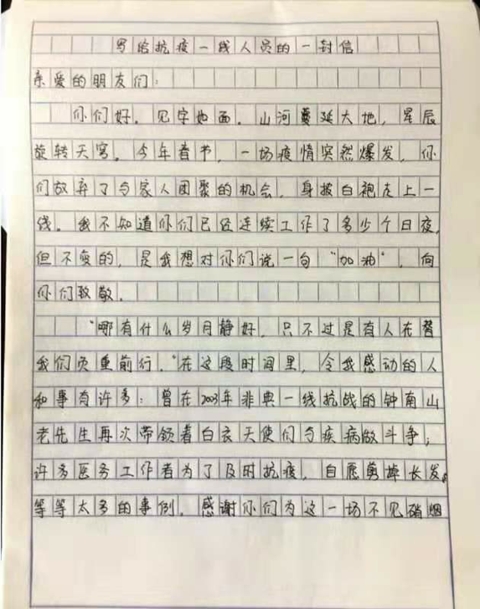 写给抗疫一线人员的一封信
亲爱的朋友们：
你们好。见字如面。山河蔓延大地，星辰
旋转天穹。今年春节，一场疫情突然爆发，你
们放弃了与家人团聚的机会，身披白袍走上一
线。我不知道你们已经连续工作了多少个日夜，
但不变的，是我想对你们说一句“加油”，向
你们致敬。
“哪有什么岁月静好，只不过是有人在替
我们负重前行。”在这段时间里，令我感动的人
和事有许多：曾在2003年非典一线抗战的钟南山
老先生再次带领着白衣天使们与疾病做斗争；
许多医务工作者为了及时抗疫，自愿剪掉长发。
等等太多的事例。感谢你们为这一场不见硝烟